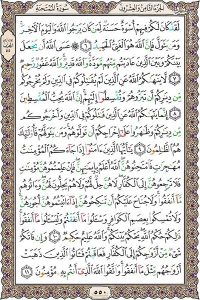 الجزء الثامن والعشرون سورة الممتحنة
لَقَدْ كَانَ لَكُمْ فِيهِمْ أُسْوَةٌ حَسَنَةٌ لِّمَن كَانَ يَرْجُوا۟ ٱللَّهَ وَٱلْيَوْمَ ٱلْـَٔاخِرَ
وَمَن يَتَوَلَّ فَإِنَّ ٱللَّهَ هُوَ ٱلْغَنِىُّ ٱلْحَمِيدُ ٦ عَسَى ٱللَّهُ أَن يَجْعَلَ
بَيْنَكُمْ وَبَيْنَ ٱلَّذِينَ عَادَيْتُم مِّنْهُم مَّوَدَّةً وَٱللَّهُ قَدِيرٌ وَٱللَّهُ غَفُورٌ رَّحِيمٌ
٧ لَّا يَنْهَىٰكُمُ ٱللَّهُ عَنِ ٱلَّذِينَ لَمْ يُقَـٰتِلُوكُمْ فِى ٱلدِّينِ وَلَمْ يُخْرِجُوكُم
مِّن دِيَـٰرِكُمْ أَن تَبَرُّوهُمْ وَتُقْسِطُوٓا۟ إِلَيْهِمْ إِنَّ ٱللَّهَ يُحِبُّ ٱلْمُقْسِطِينَ
٨ إِنَّمَا يَنْهَىٰكُمُ ٱللَّهُ عَنِ ٱلَّذِينَ قَـٰتَلُوكُمْ فِى ٱلدِّينِ وَأَخْرَجُوكُم
مِّن دِيَـٰرِكُمْ وَظَـٰهَرُوا۟ عَلَىٰٓ إِخْرَاجِكُمْ أَن تَوَلَّوْهُمْ وَمَن يَتَوَلَّهُمْ فَأُو۟لَـٰٓئِكَ هُمُ
ٱلظَّـٰلِمُونَ ٩ يَـٰٓأَيُّهَا ٱلَّذِينَ ءَامَنُوٓا۟ إِذَا جَآءَكُمُ ٱلْمُؤْمِنَـٰتُ
مُهَـٰجِرَٰتٍ فَٱمْتَحِنُوهُنَّ ٱللَّهُ أَعْلَمُ بِإِيمَـٰنِهِنَّ فَإِنْ عَلِمْتُمُوهُنَّ مُؤْمِنَـٰتٍ
فَلَا تَرْجِعُوهُنَّ إِلَى ٱلْكُفَّارِ لَا هُنَّ حِلٌّ لَّهُمْ وَلَا هُمْ يَحِلُّونَ لَهُنَّ وَءَاتُوهُم
مَّآ أَنفَقُوا۟ وَلَا جُنَاحَ عَلَيْكُمْ أَن تَنكِحُوهُنَّ إِذَآ ءَاتَيْتُمُوهُنَّ أُجُورَهُنَّ
وَلَا تُمْسِكُوا۟ بِعِصَمِ ٱلْكَوَافِرِ وَسْـَٔلُوا۟ مَآ أَنفَقْتُمْ وَلْيَسْـَٔلُوا۟ مَآ أَنفَقُوا۟
ذَٰلِكُمْ حُكْمُ ٱللَّهِ يَحْكُمُ بَيْنَكُمْ وَٱللَّهُ عَلِيمٌ حَكِيمٌ ١٠ وَإِن فَاتَكُمْ
شَىْءٌ مِّنْ أَزْوَٰجِكُمْ إِلَى ٱلْكُفَّارِ فَعَاقَبْتُمْ فَـَٔاتُوا۟ ٱلَّذِينَ ذَهَبَتْ
أَزْوَٰجُهُم مِّثْلَ مَآ أَنفَقُوا۟ وَٱتَّقُوا۟ ٱللَّهَ ٱلَّذِىٓ أَنتُم بِهِۦ مُؤْمِنُونَ ١١
٥٥٠